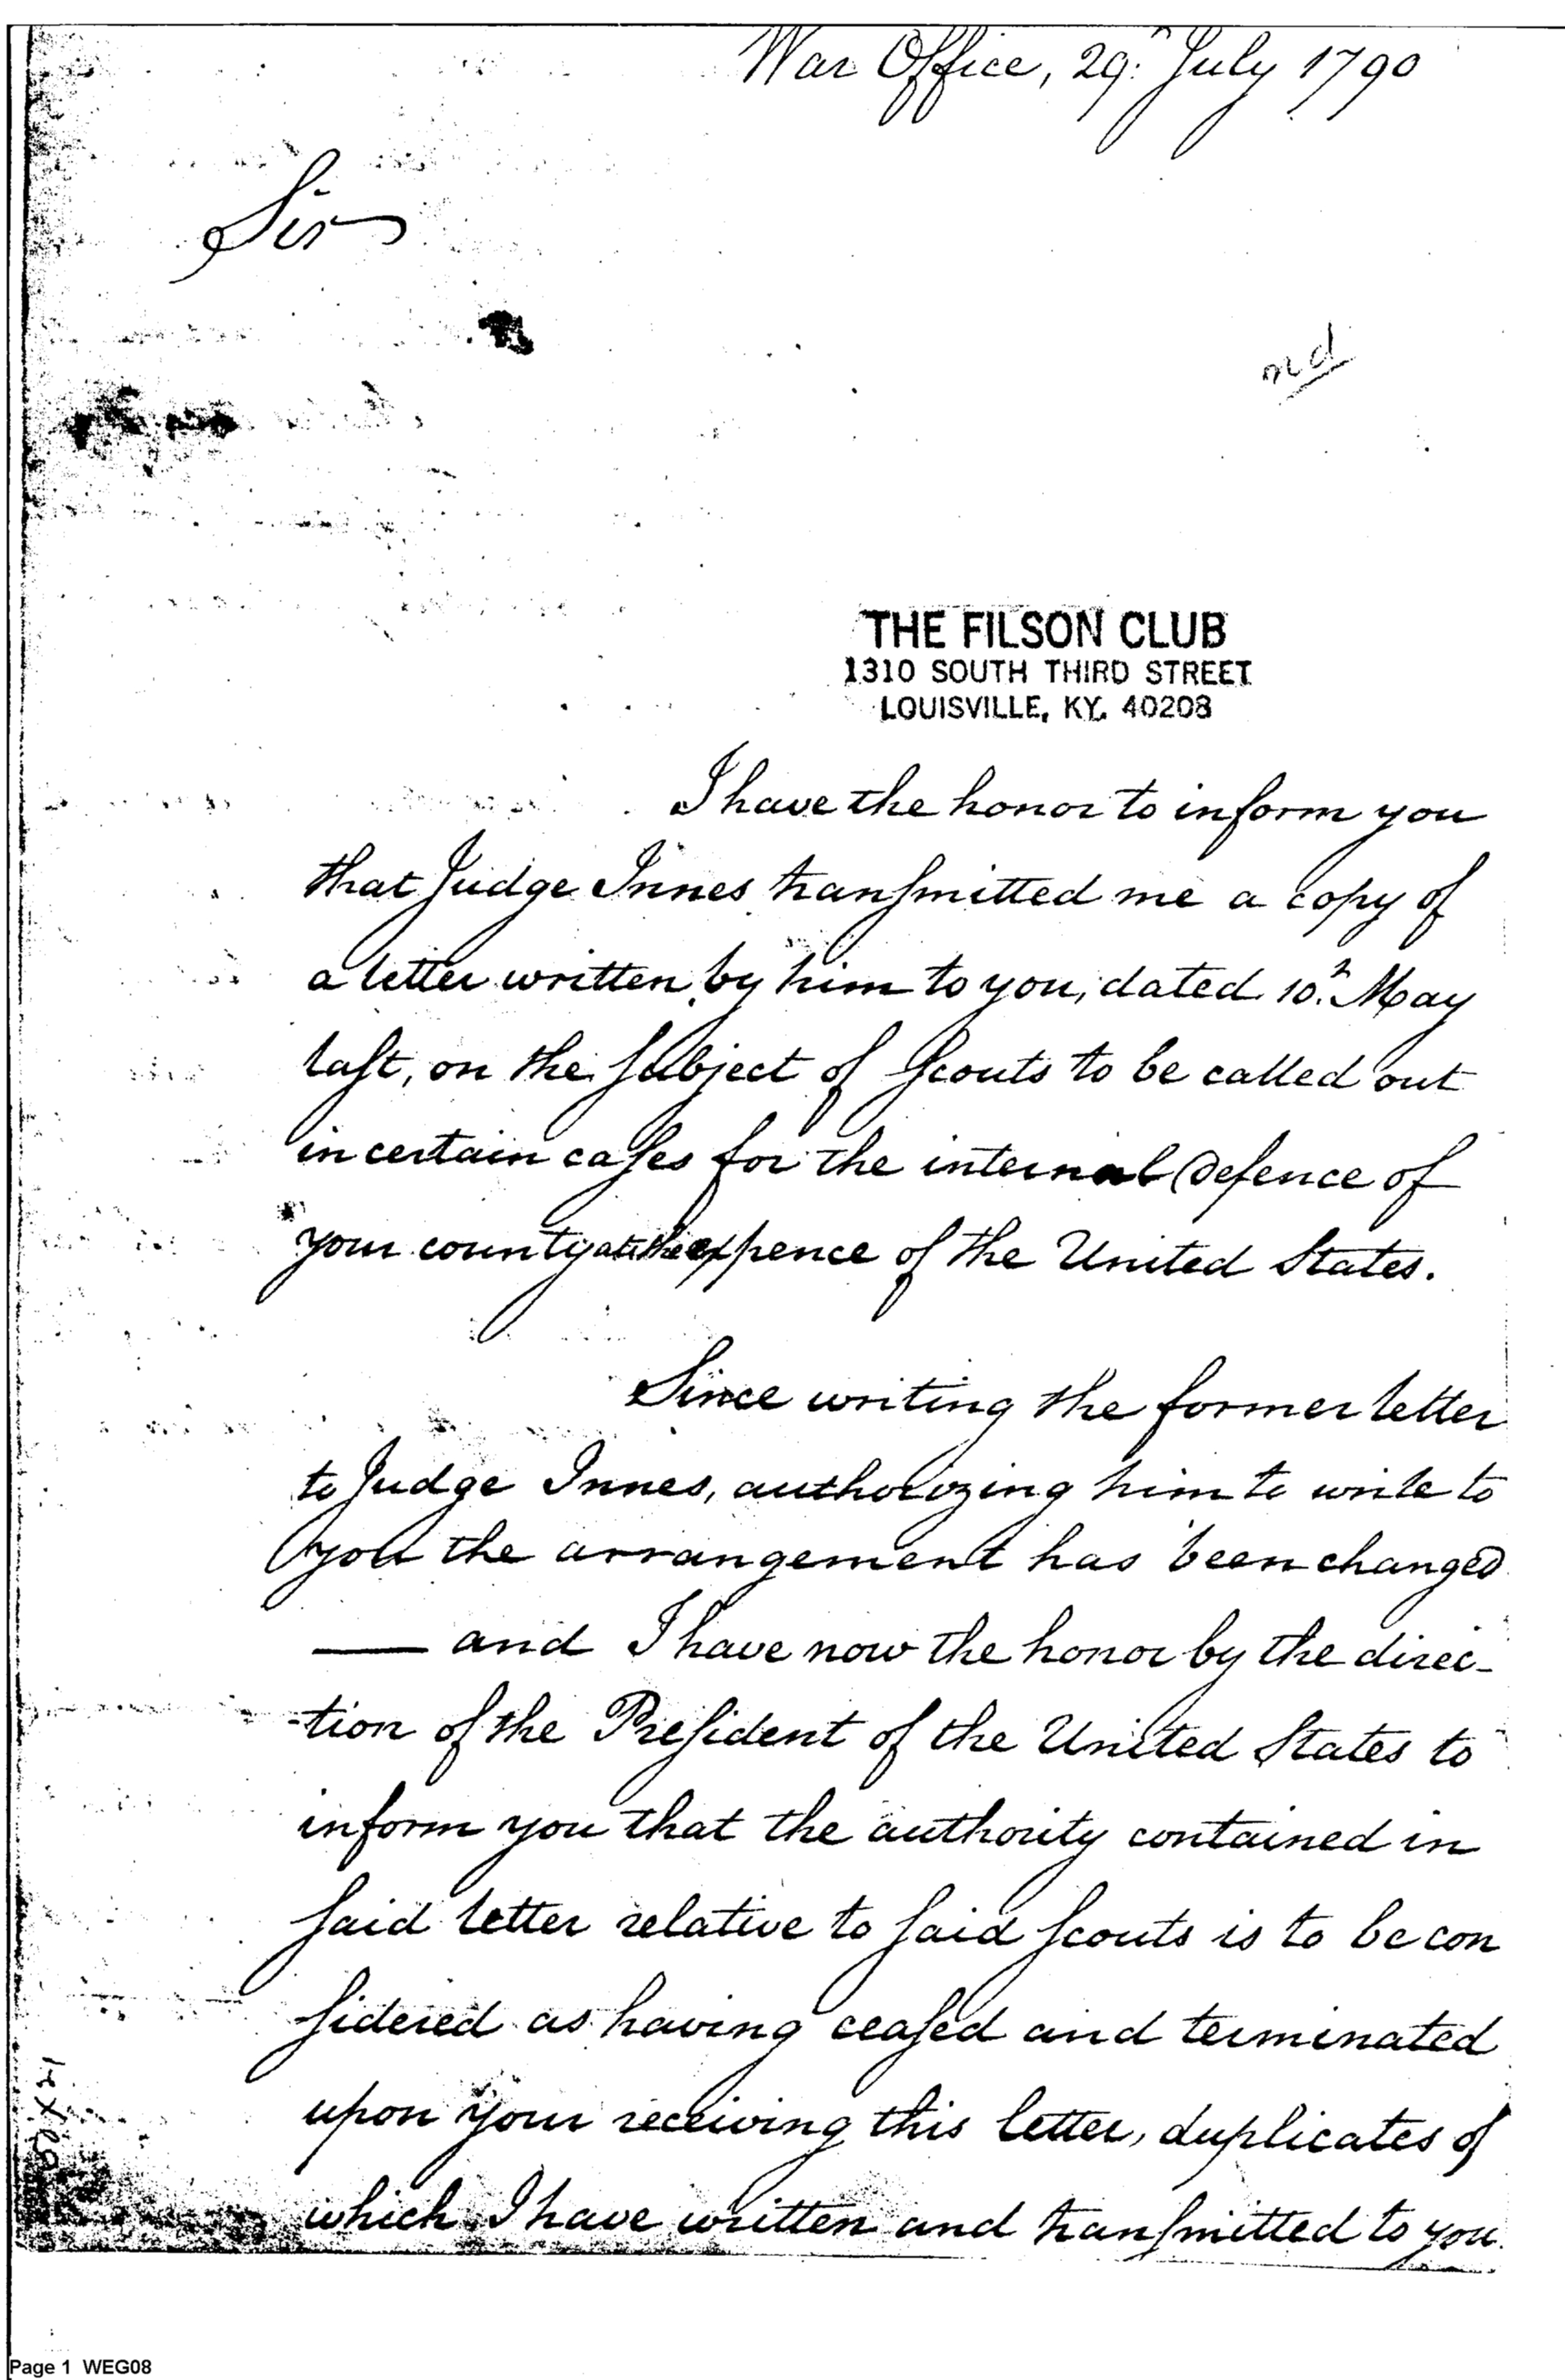 War Office, 29.th July 1790
Sir
nd
THE FILSON CLUB
1310 SOUTH THIRD STREET
LOUISVILLE, KY. 40203
I have the honor to inform you
that Judge Innes tranſmitted me a copy of
a letter written by him to you, dated 10.th May
laſt, on the ſubject of ſcouts to be called out
in certain caſes for the internal Defence of
your county at the expence of the United States.
Since writing the former letter
to Judge Innes, authorizing him to write to
you the arrangement has been changed
— and I have now the honor by the direc-
-tion of the Preſident of the United States to
inform you that the authority contained in
ſaid letter relative to ſaid ſcouts is to be con
ſidered as having ceaſed and terminated
upon your receiving this letter, duplicates of
which I have written and tranſmitted to you.
Page 1 WEG08